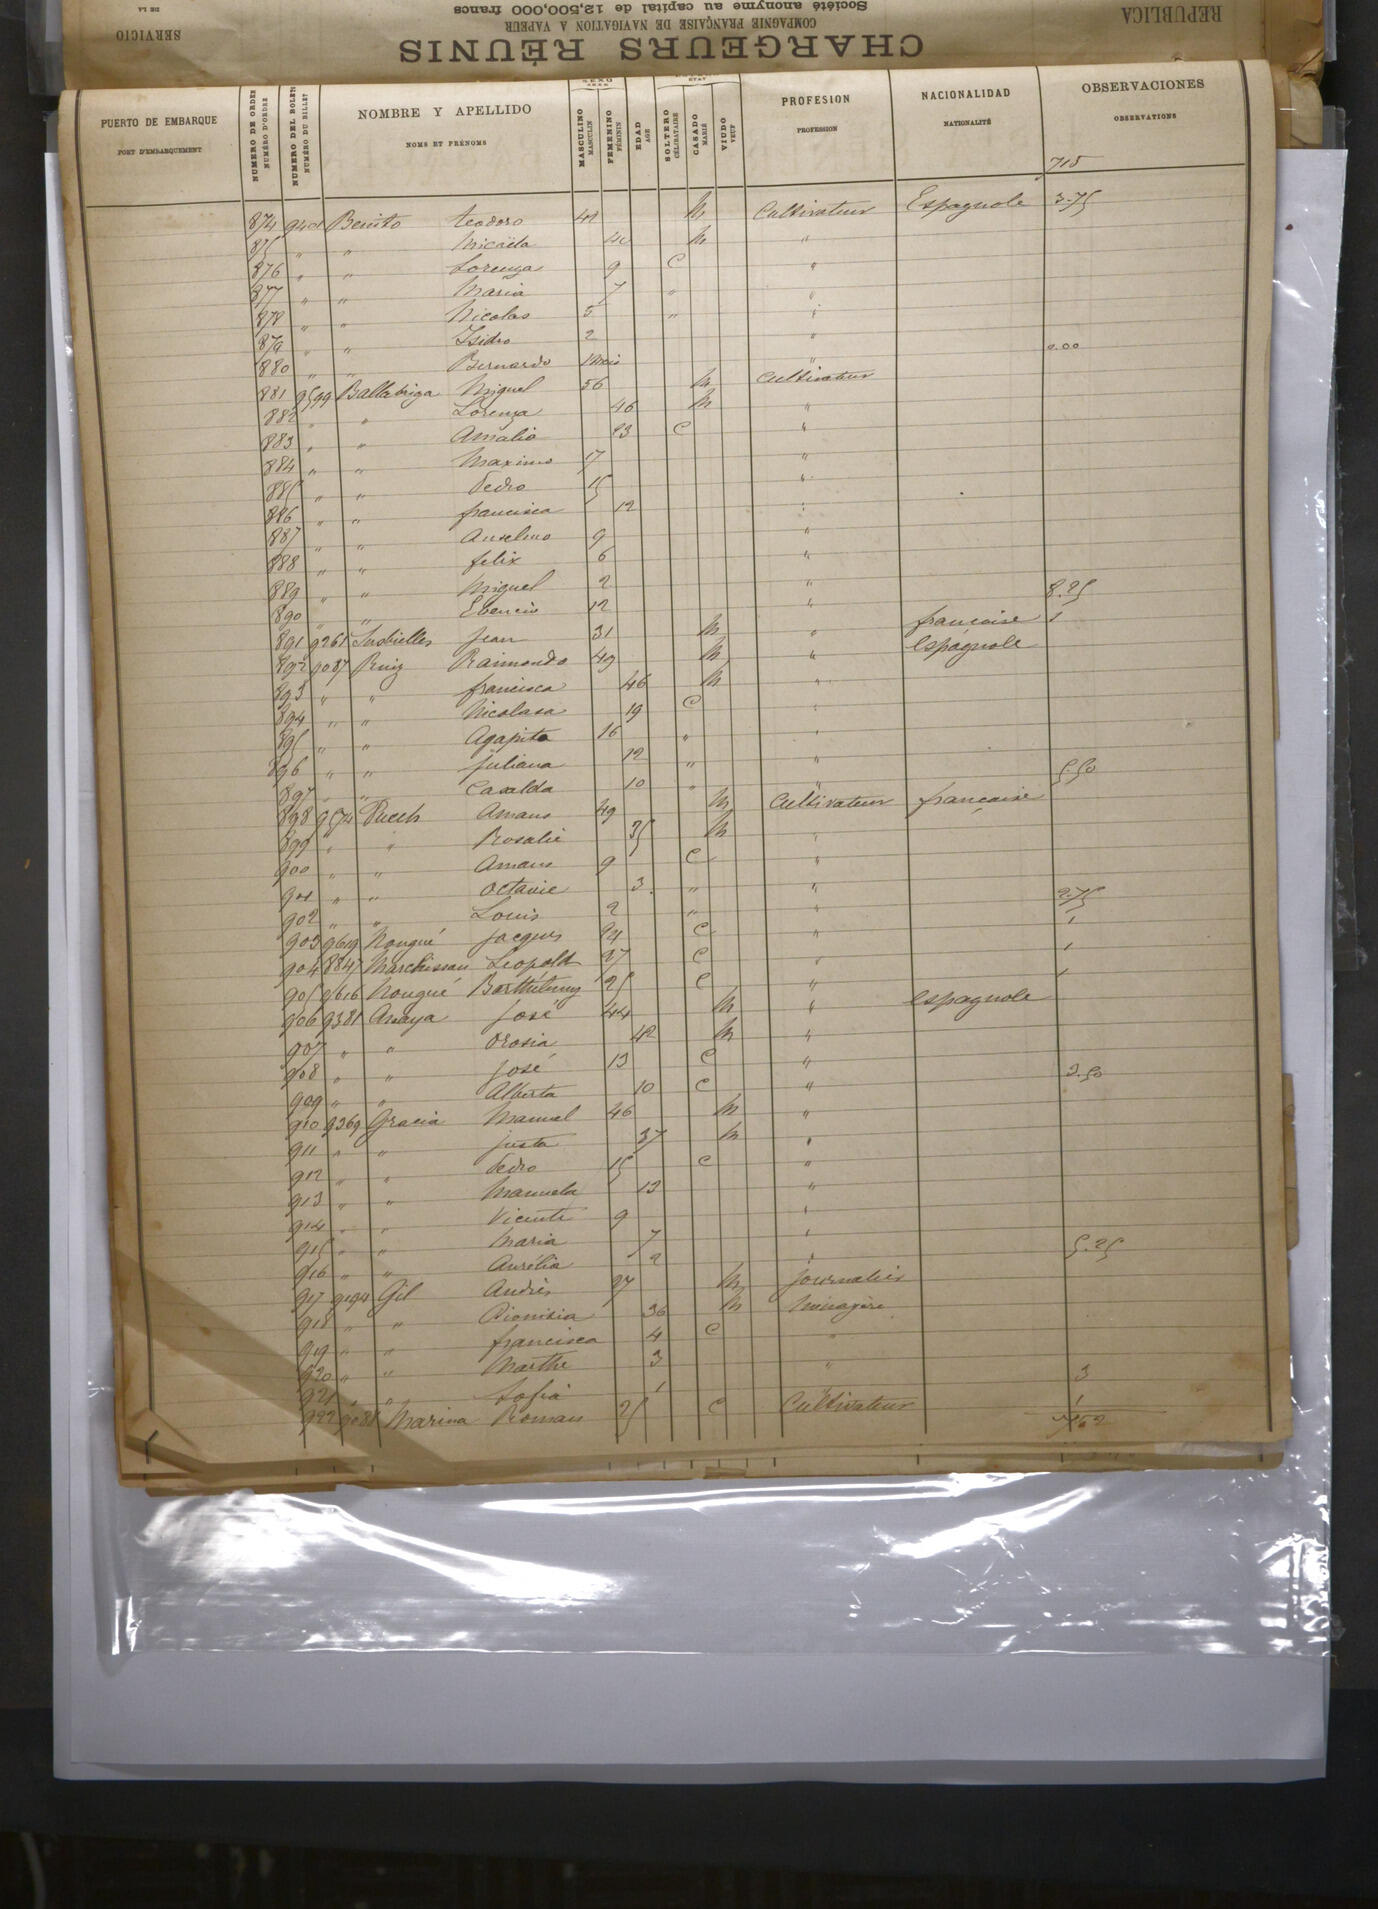 SERVICIO
DE LA
REPUBLICA
Société anonyme au capital de 12,500,000 francs
COMPAGNIE FRANÇAISE DE NAVIGATION A VAPEUR
CHARGEURS RÉUNIS
PUERTO DE EMBARQUE PORT D'EMBARQUEMENT NUMERO DE ORDEN NUMÉRO D'ORDRE NUMERO DEL BOLET NUMÉRO DU BILLET NOMBRE Y APELLIDO NOMS ET PRÉNOMS SEXO SEXE MASCULINO MASCULIN FEMENINO FÉMININ EDAD AGE ETAT SOLTERO CÉLIBATAIRE CASADO MARIÉ VIUDO VEUF PROFESION PROFESSION NACIONALIDAD NATIONALITÉ OBSERVACIONES OBSERVATIONS
715
874 Benito Teodoro M Cultivateur Espagnole 3.75
875 " " Micaëla M "
876 " " Lorenza 9 C "
877 " " Maria 7 " "
878 " " Nicolas 5 " "
879 " " Isidro 2 "
880 " " Bernardo 1 Mois "
881 9599 Baltabriga Miguel 56 M Cultivateur
882 " " Lorenza 46 M "
883 " " Amalia 23 C "
884 " " Maximo 17 "
885 " " Pedro 15 "
886 " " francisca 12 "
887 " " Anselmo 9 "
888 " " felix 6 "
889 " " Miguel 2 " 8.25
890 " " 12 "
891 9261 Jean 31 M " francaise 1
892 9087 Ruiz Raimondo 49 M " Espagnole
893 " " francisca 46 M "
894 " " Nicolasa 19 C "
895 " " Agapito 16 " "
896 " " Juliana 12 " "
897 " " Casalda 10 " " 5.50
898 9574 Puech Amans 49 M Cultivateur francaise
899 " " Rosalie 35 M "
900 " " Amans 9 C "
901 " " Octavie 3 " "
902 " " Louis 2 " " 2.75
903 9619 Nougué Jacques 24 C " 1
904 8847 Marchissau Leopold 27 C " 1
905 9616 Nougué Barthélemy 25 C " 1
906 9381 Anaya José 44 M " espagnole
907 " " Orosia 42 M "
908 " " José 13 C "
909 " " Alberta 10 C " 3.50
910 9369 Gracia Manuel 46 M "
911 " " Justa 37 M "
912 " " Pedro 15 C "
913 " " Manuela 13 "
914 " " Vicente 9 "
915 " " Maria 7 "
916 " " Aurélia 2 " 5.25
917 9194 Gil Andrés 27 M Journalier
918 " " Dionisia 36 M Ménagère
919 " " francisca 4 C "
920 " " Marthe 3 "
921 " " Sofia 1 " 3
922 9088 Marina Roman 25 C Cultivateur 1